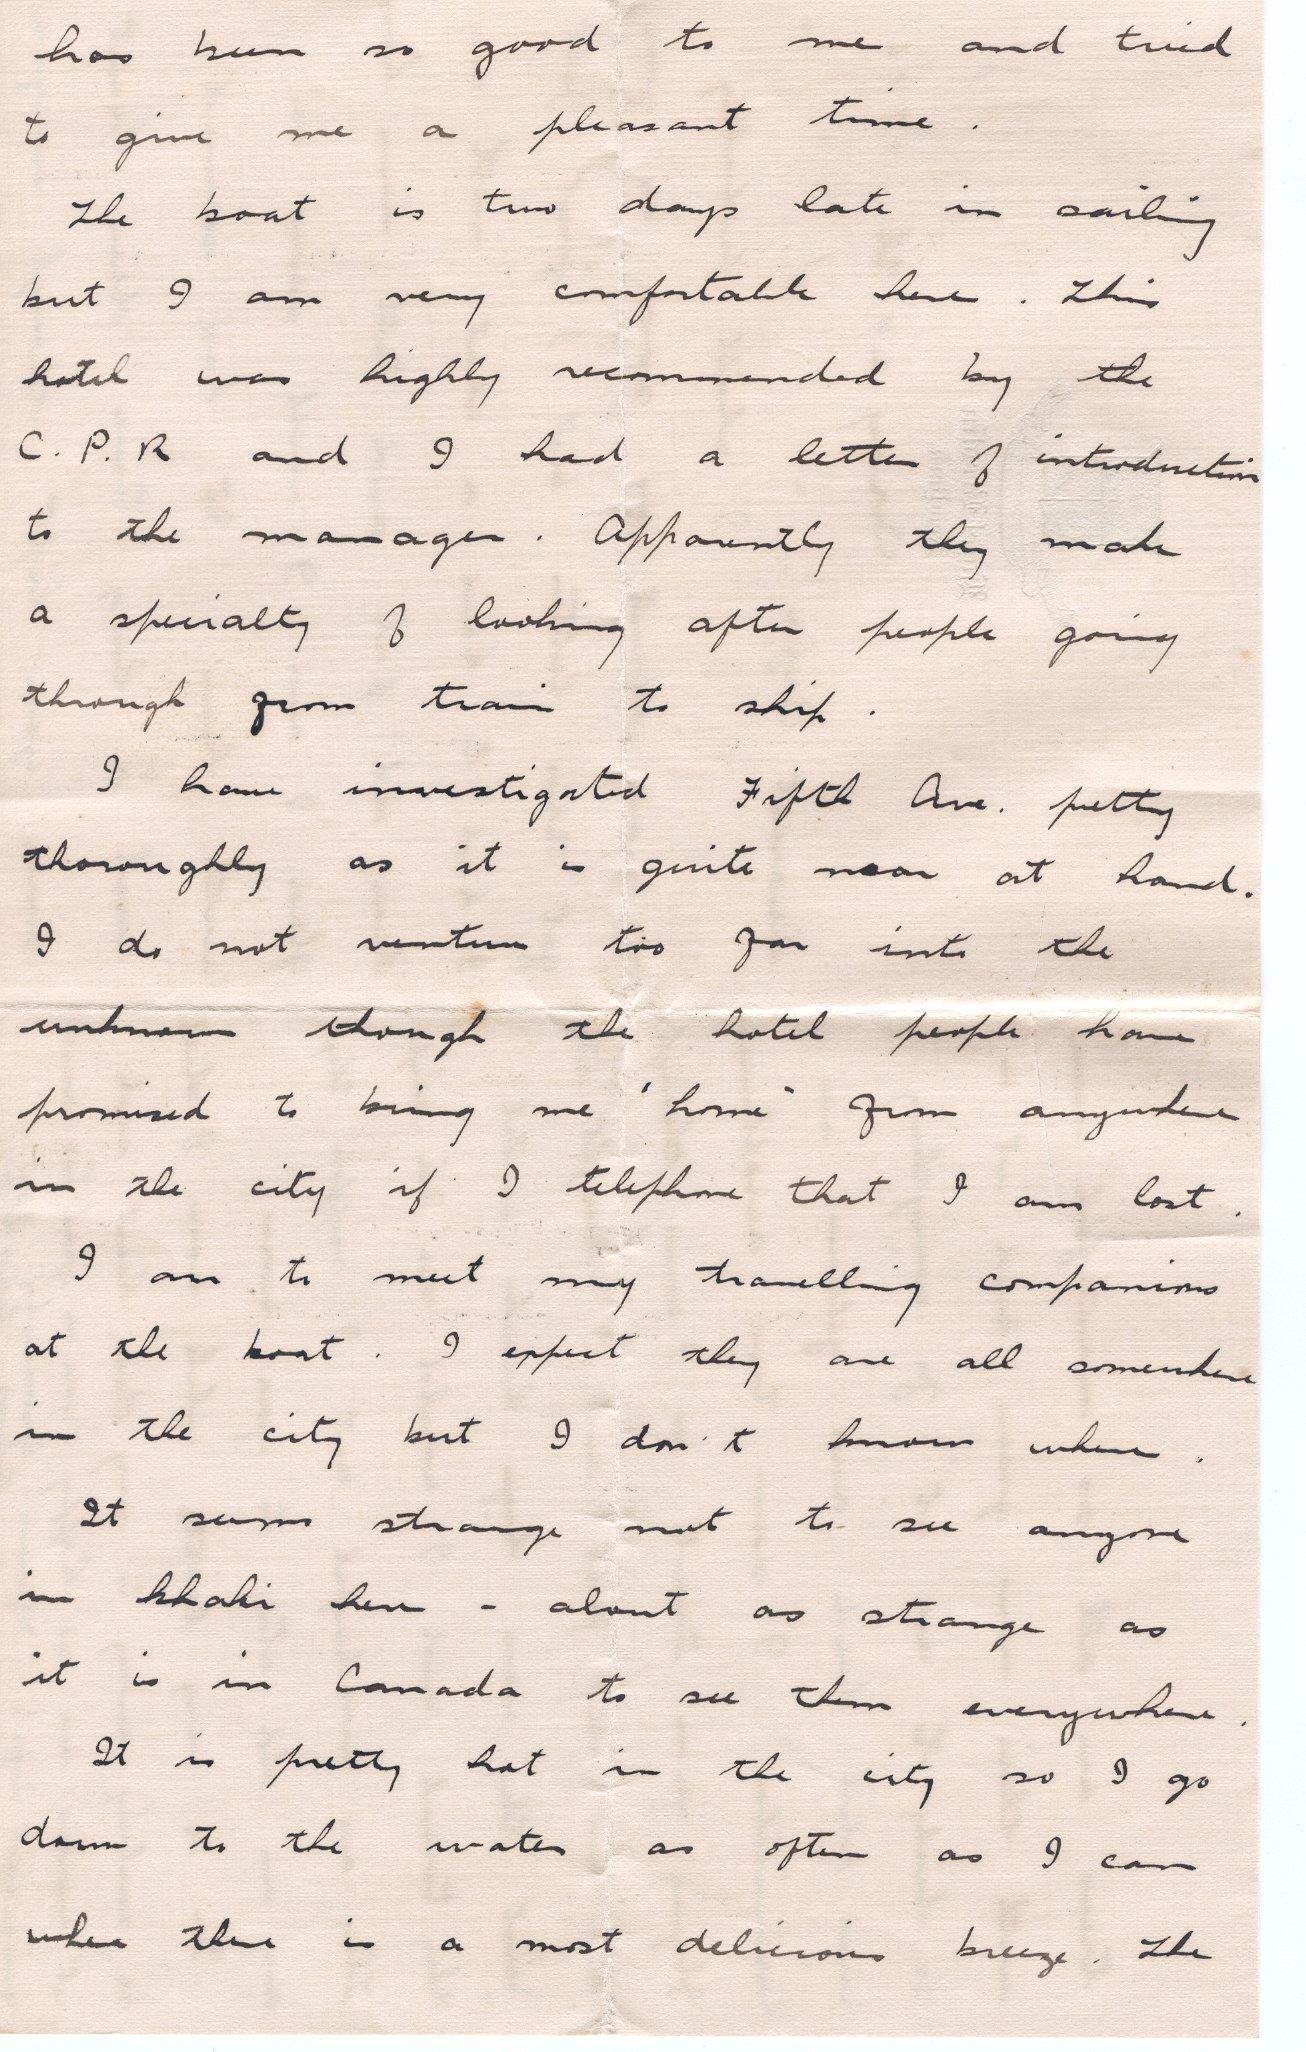 has been so good to me and tried
to give me a pleasant time.
The boat is two days late in sailing
but I am very comfortable here. This
hotel was highly recommended by the
C.P.R and I had a letter of introduction
to the manager. Apparently they make
a specialty of looking after people going
through from train to ship.
I have investigated Fifth Ave. pretty
thoroughly as it is quite near at hand.
I do not venture too far into the
unknown though the hotel people have
promised to bring me 'home' from anywhere
in the city if I telephone that I am lost.
I am to meet my travelling companions
at the boat. I expect they are all somewhere
in the city but I don't know where.
It seems strange not to see anyone
in khaki here - about as strange as
it is in Canada to see them everywhere.
It is pretty hot in the city so I go
down to the water as often as I can
where there is a most delicious breeze. The